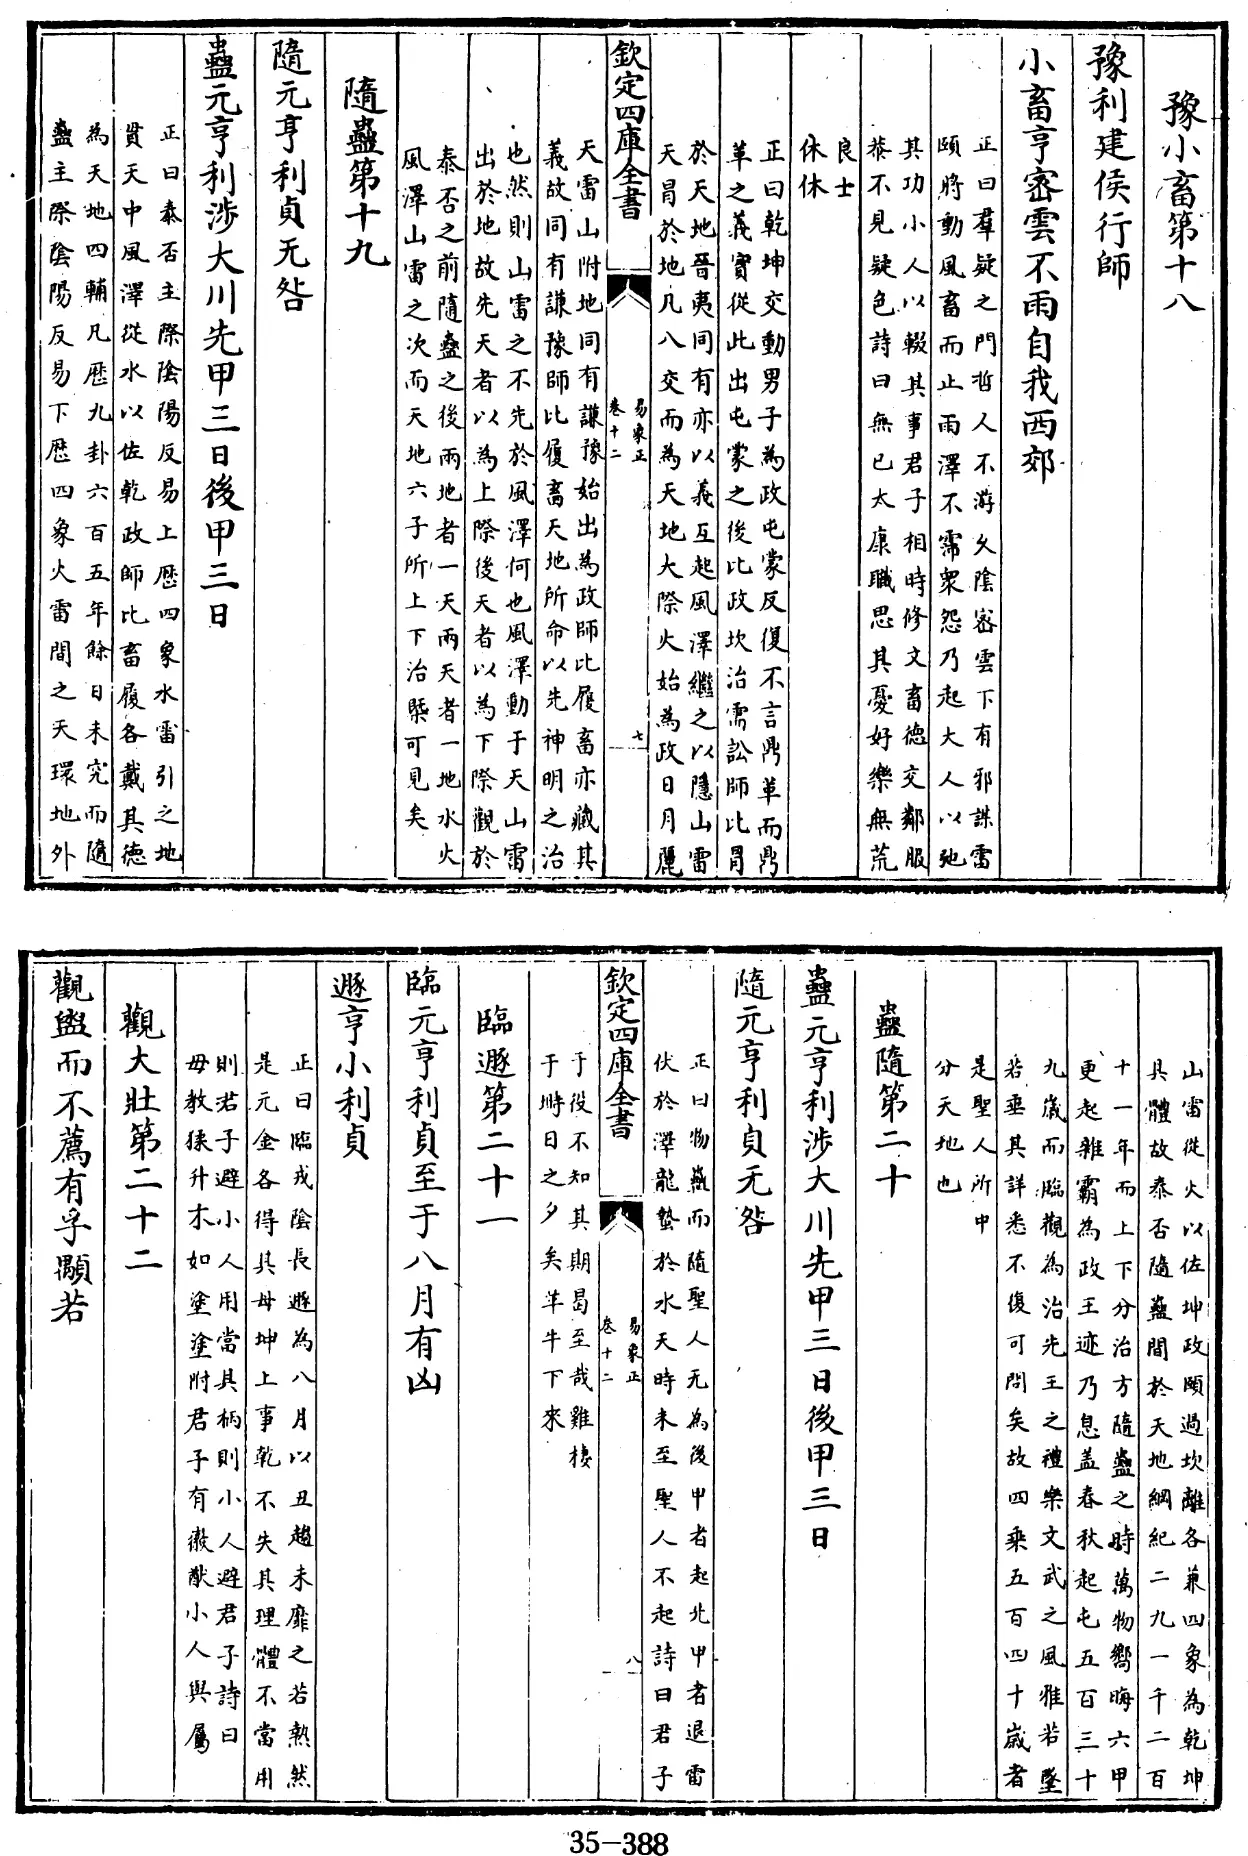 豫小畜第十八
豫利建侯行師
小畜亨密雲不雨自我西郊
正曰羣疑之門哲人不游夊陰密雲下有邪誅雷
頤將動風畜而止雨澤不霈衆怨乃起大人以弛
其功小人以輟其事君子相時修文畜德交鄰服
恭不見疑色詩曰無已太康職思其憂好樂無荒
良士
休休
正曰乾坤交動男子為政屯蒙反復不言鼎革而鼎
革之義實從此出屯蒙之後比政坎治需訟師比冐
於天地晉夷同有亦以義互起風澤繼之以隱山雷
天冐於地凡八交而為天地大際火始為政日月麗
欽定四庫全書
易象正
卷十二
七
天雷山附地同有謙豫始出為政師比履畜亦藏其
義故同有謙豫師比履畜天地所命以先神明之治
也然則山雷之不先於風澤何也風澤動于天山雷
出於地故先天者以為上際後天者以為下際觀於
泰否之前隨蠱之後兩地者一天兩天者一地水火
風澤山雷之次而天地六子所上下治槩可見矣
隨蠱第十九
隨元亨利貞无咎
蠱元亨利涉大川先甲三日後甲三日
正曰泰否主際陰陽反易上厯四象水雷引之地
貫天中風澤從水以佐乾政師比畜履各戴其德
為天地四輔凡厯九卦六百五年餘日未究而隨
蠱主際陰陽反易下厯四象火雷間之天環地外
山雷從火以佐坤政頤過坎離各兼四象為乾坤
具體故泰否隨蠱間於天地綱紀二九一千二百
十一年而上下分治方隨蠱之時萬物嚮晦六甲
更起雜霸為政王迹乃息盖春秋起屯五百三十
九歲而臨觀為治先王之禮樂文武之風雅若墜
若垂其詳悉不復可問矣故四乘五百四十歲者
是聖人所中
分天地也
蠱隨第二十
蠱元亨利涉大川先甲三日後甲三日
隨元亨利貞无咎
正曰物蠱而隨聖人无為後甲者起北甲者退雷
伏於澤龍蟄於水天時未至聖人不起詩曰君子
欽定四庫全書
易象正
卷十二
八
于役不知其期曷至哉雞棲
于塒日之夕矣羊牛下來
臨遯第二十一
臨元亨利貞至于八月有凶
遯亨小利貞
正曰臨戎陰長遯為八月以丑趨未靡之若熱然
是元金各得其母坤上事乾不失其理體不當用
則君子避小人用當其柄則小人避君子詩曰
毋教猱升木如塗塗附君子有徽猷小人與屬
觀大壯第二十二
觀盥而不薦有孚顒若
35-388